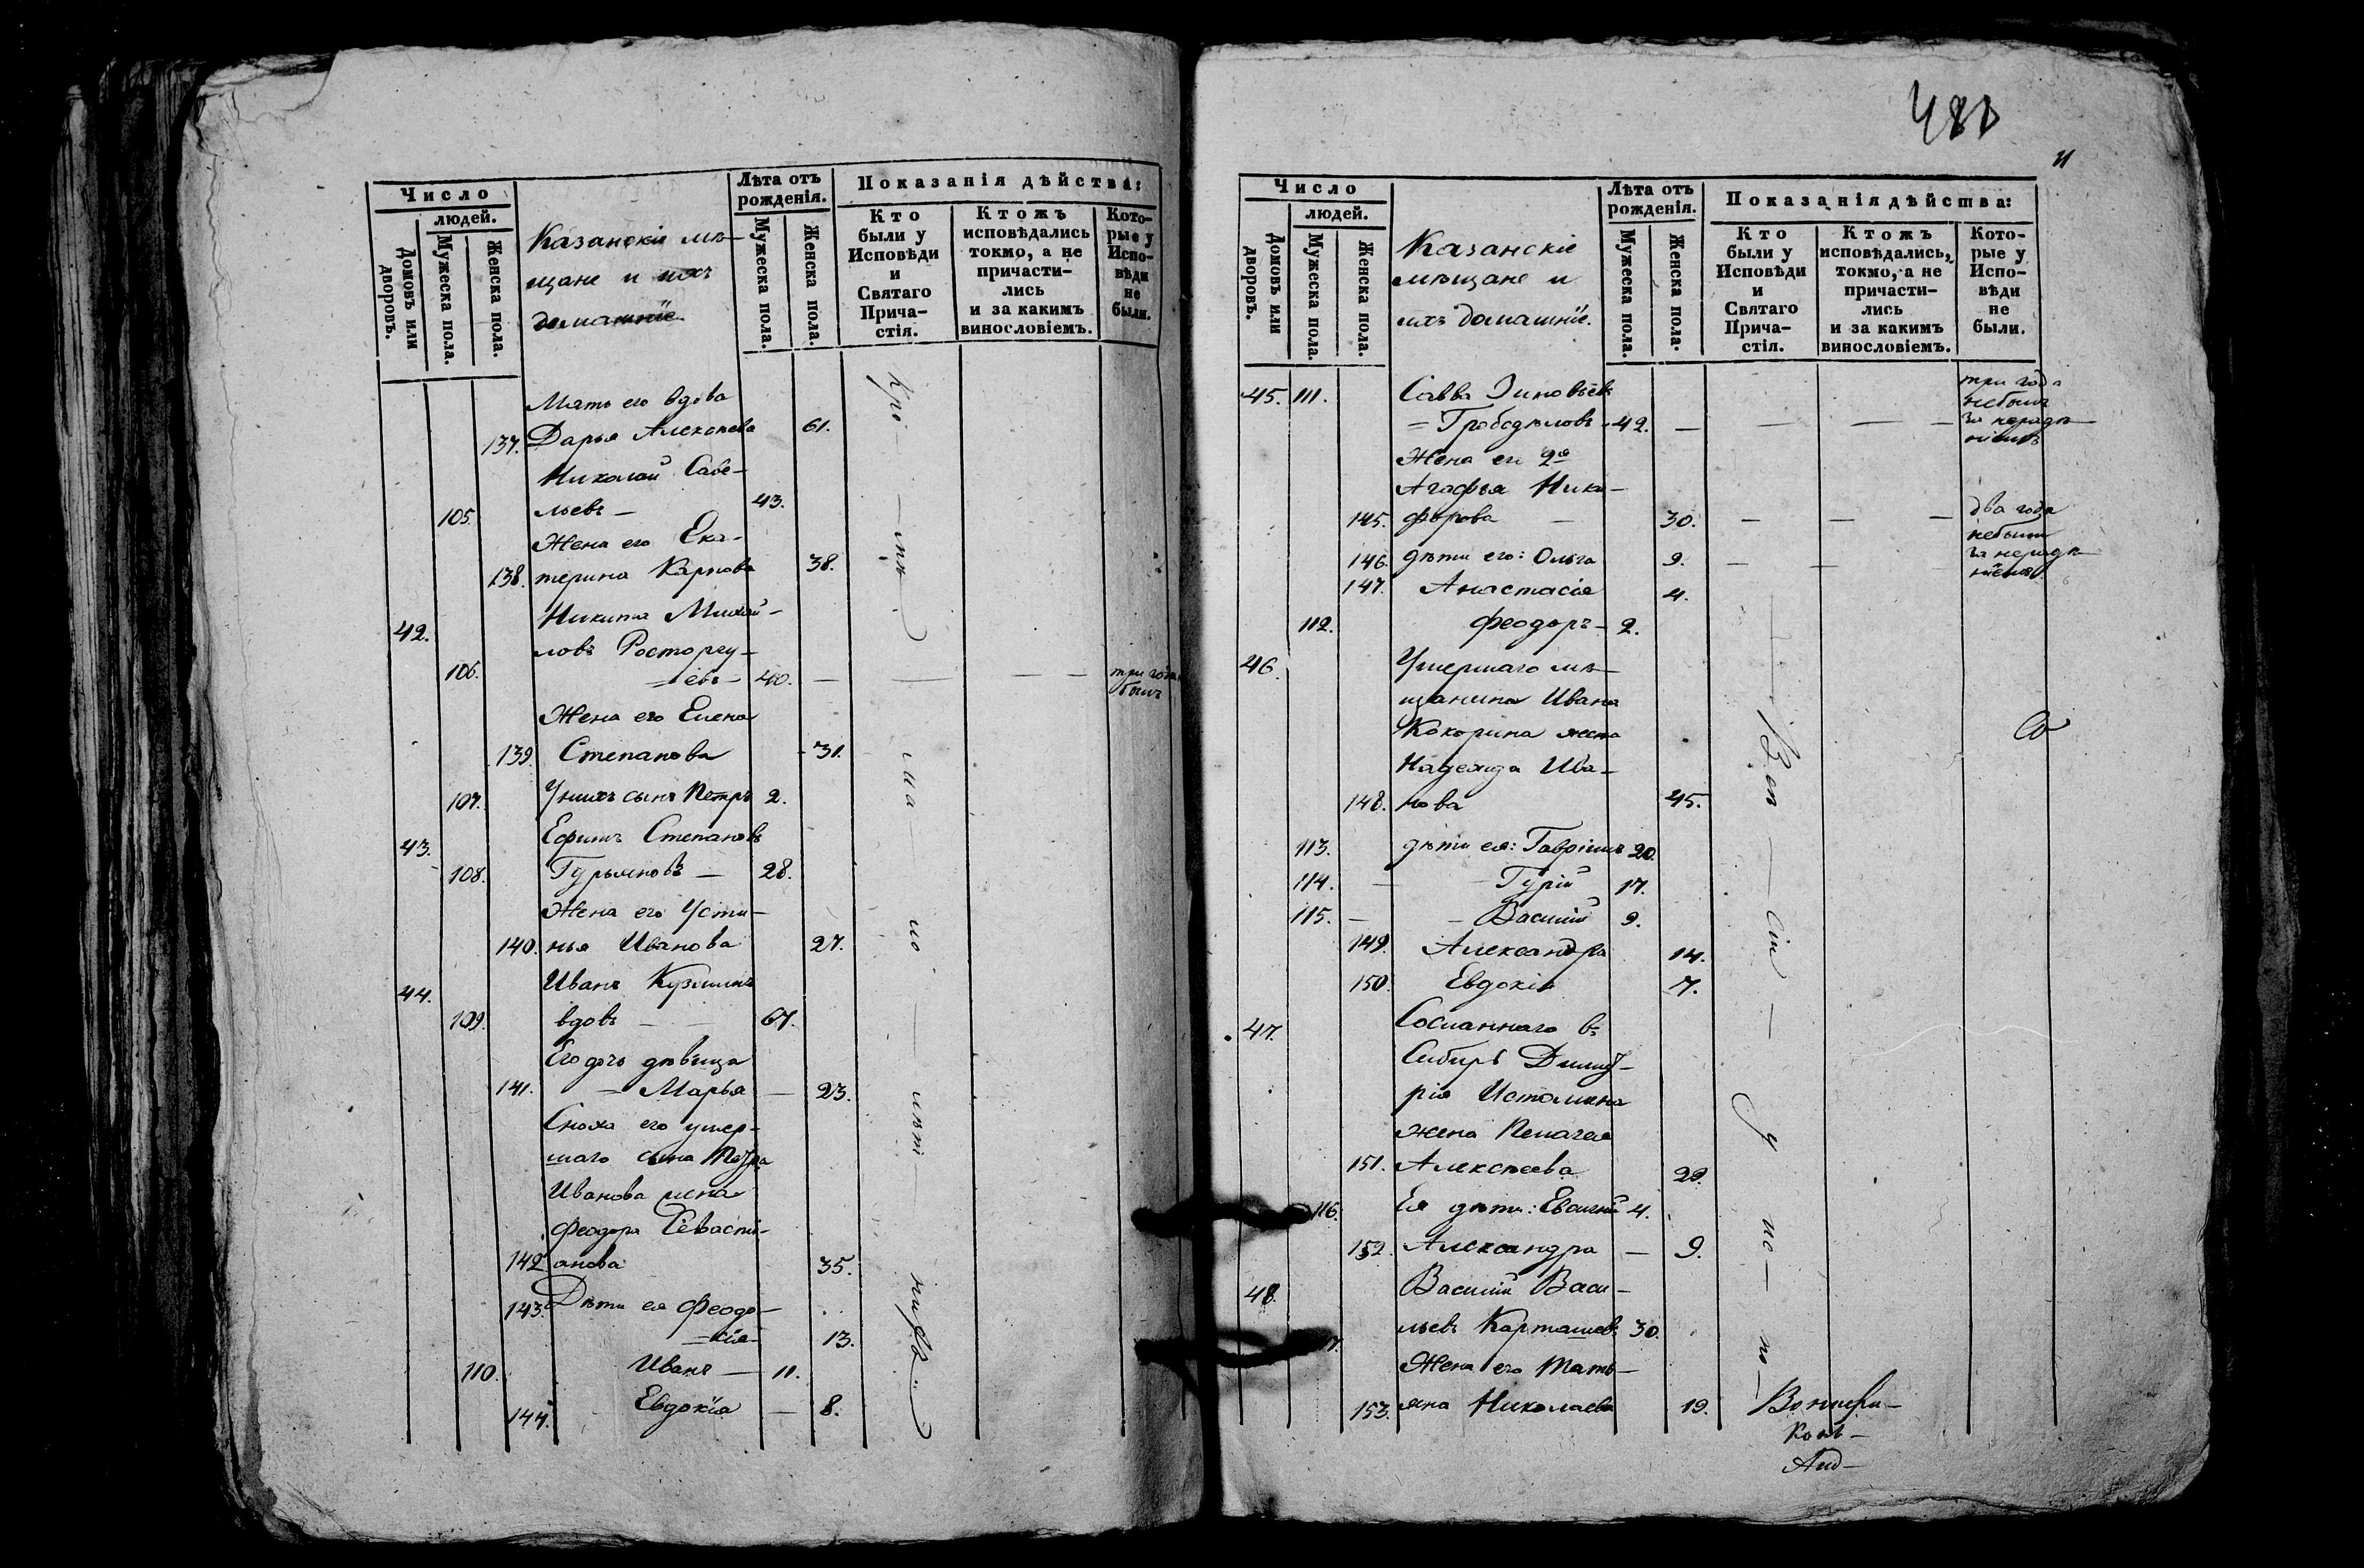 Число
людей.
Домовъ или дворовъ.
Мужеска пола.
Женска пола.
Казанскіе мѣ-
щане и ихъ
домашніе
Лѣта отъ
рожденія.
Мужеска пола.
Женска пола.
Показанія дѣйства:
Кто
были у
Исповѣди
и
Святаго
Прича-
стія.
Ктожъ
исповѣдались
токмо, а не
причасти-
лись
и за какимъ
винословіемъ.
Кото-
рые у
Испо-
вѣди
не
были.
Мать его вдова
137. Дарья Алексеева 61.
Николай Саве-
105. льевъ — 43.
Жена его Ека-
138. терина Карпова 38.
42. Никита Михай-
ловъ Расторгу-
106. =евъ — 40. — — — — три года
Жена его Елена
139. Степанова 31.
107. У нихъ сынъ Петръ 2.
43. Ефимъ Степановъ
108. Гурьяновъ — 28.
Жена его Усти-
140. нья Иванова 27.
44. Иванъ Кузминъ
109. вдовъ — — 67.
Его дочь дѣвица
141. = Марья — 23.
Сноха его умер-
шаго сына Петра
Иванова жена
Феодора Севасті-
142. анова 35.
143. Дѣти ея Феодо-
=сія 13.
110. Иванъ — 11.
144. Евдокія — 8.
480
Число
людей.
Домовъ или дворовъ.
Мужеска пола.
Женска пола.
Казанскіе
мѣщане и
ихъ домашніе.
Лѣта отъ
рожденія.
Мужеска пола.
Женска пола.
Показанія дѣйства:
Кто
были у
Исповѣди
и
Святаго
Прича-
стія.
Ктожъ
исповѣдались,
токмо, а не
причасти-
лись
и за какимъ
винословіемъ.
Кото-
рые у
Испо-
вѣди
не
были.
45. 111. Савва Зиновьевъ
= Грободѣловъ — 42. — — — — три года небылъ за нерадѣніемъ
Жена его 2я
Агафья Ники-
145. форова — 30. — — — два года
146. дѣти его: Ольга 9. — — небыли за нерадѣніемъ
147. Анастасія 4.
112. Феодоръ — 2.
46. Умершаго мѣ-
щанина Ивана
Кокорина жена
Надежда Ива-
148. нова 45.
113. дѣти ея: Гавріилъ 20.
114. — — Гурій 17.
115. — — Василій 9.
149. Александра 14.
150. Евдокія 7.
47. Сосланнаго въ
Сибирь Димит-
рія Истомина
жена Пелагея
151. Алексѣева 29.
116. Ея дѣти: Евгеній 4.
152. Александра — 9.
48. Василій Васи-
льевъ Карташевъ 30.
Жена его Тать-
153. яна Николаева 19.